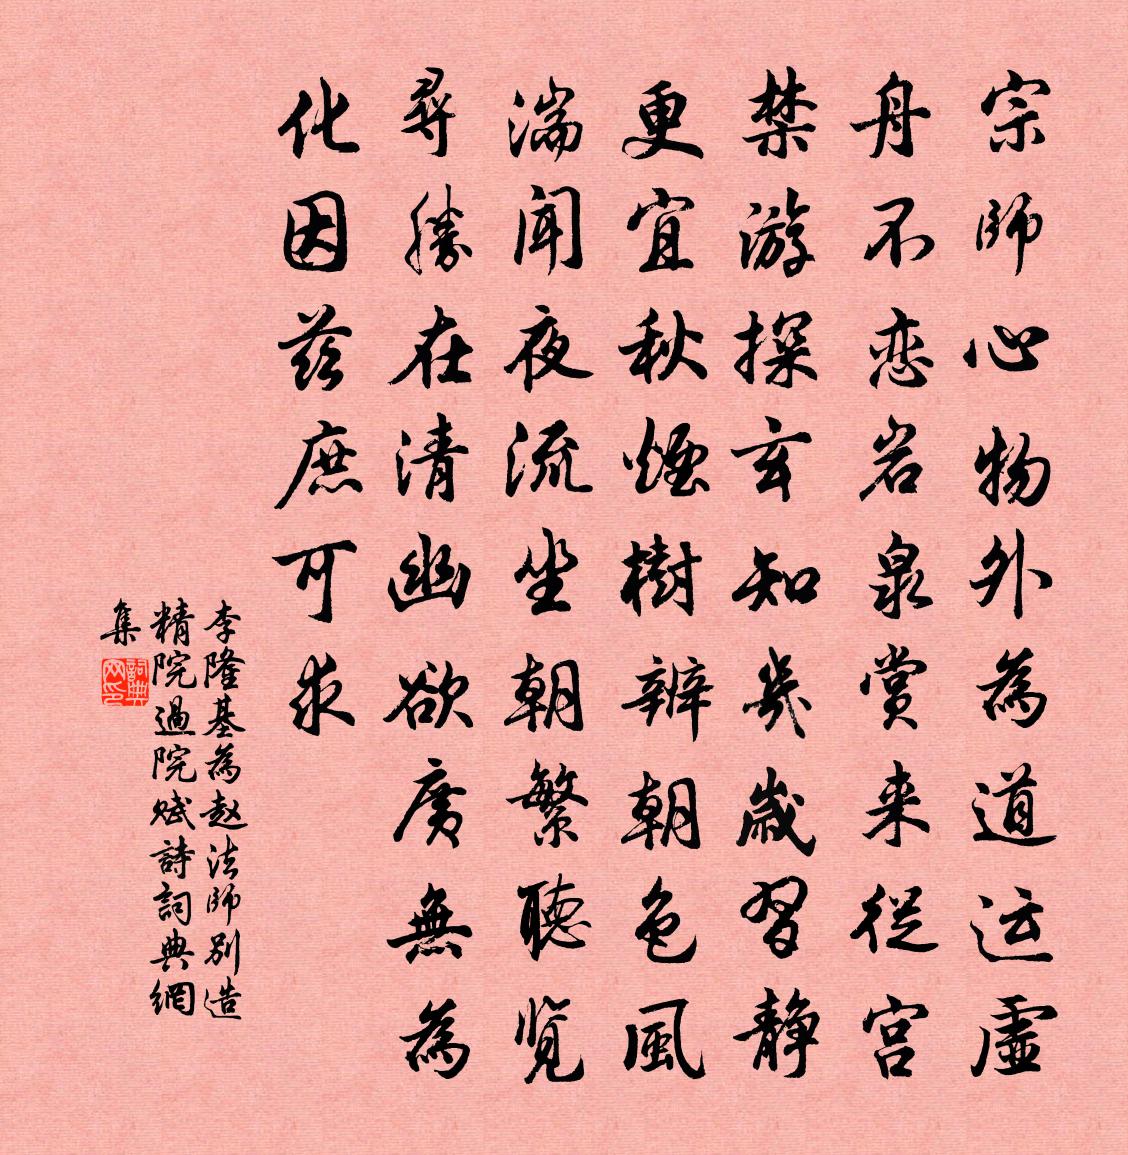 宗師心物外為道运虛
舟不恋岩泉赏来從宫
禁游探玄知幾歲習静
更宜秋煙樹辨朝色風
湍闻夜流坐朝繁聽览
尋勝在清幽欲廣無為
化因兹庶可求
李隆基為赵法師别造
精院過院赋詩詞典網
集
詞典
网印